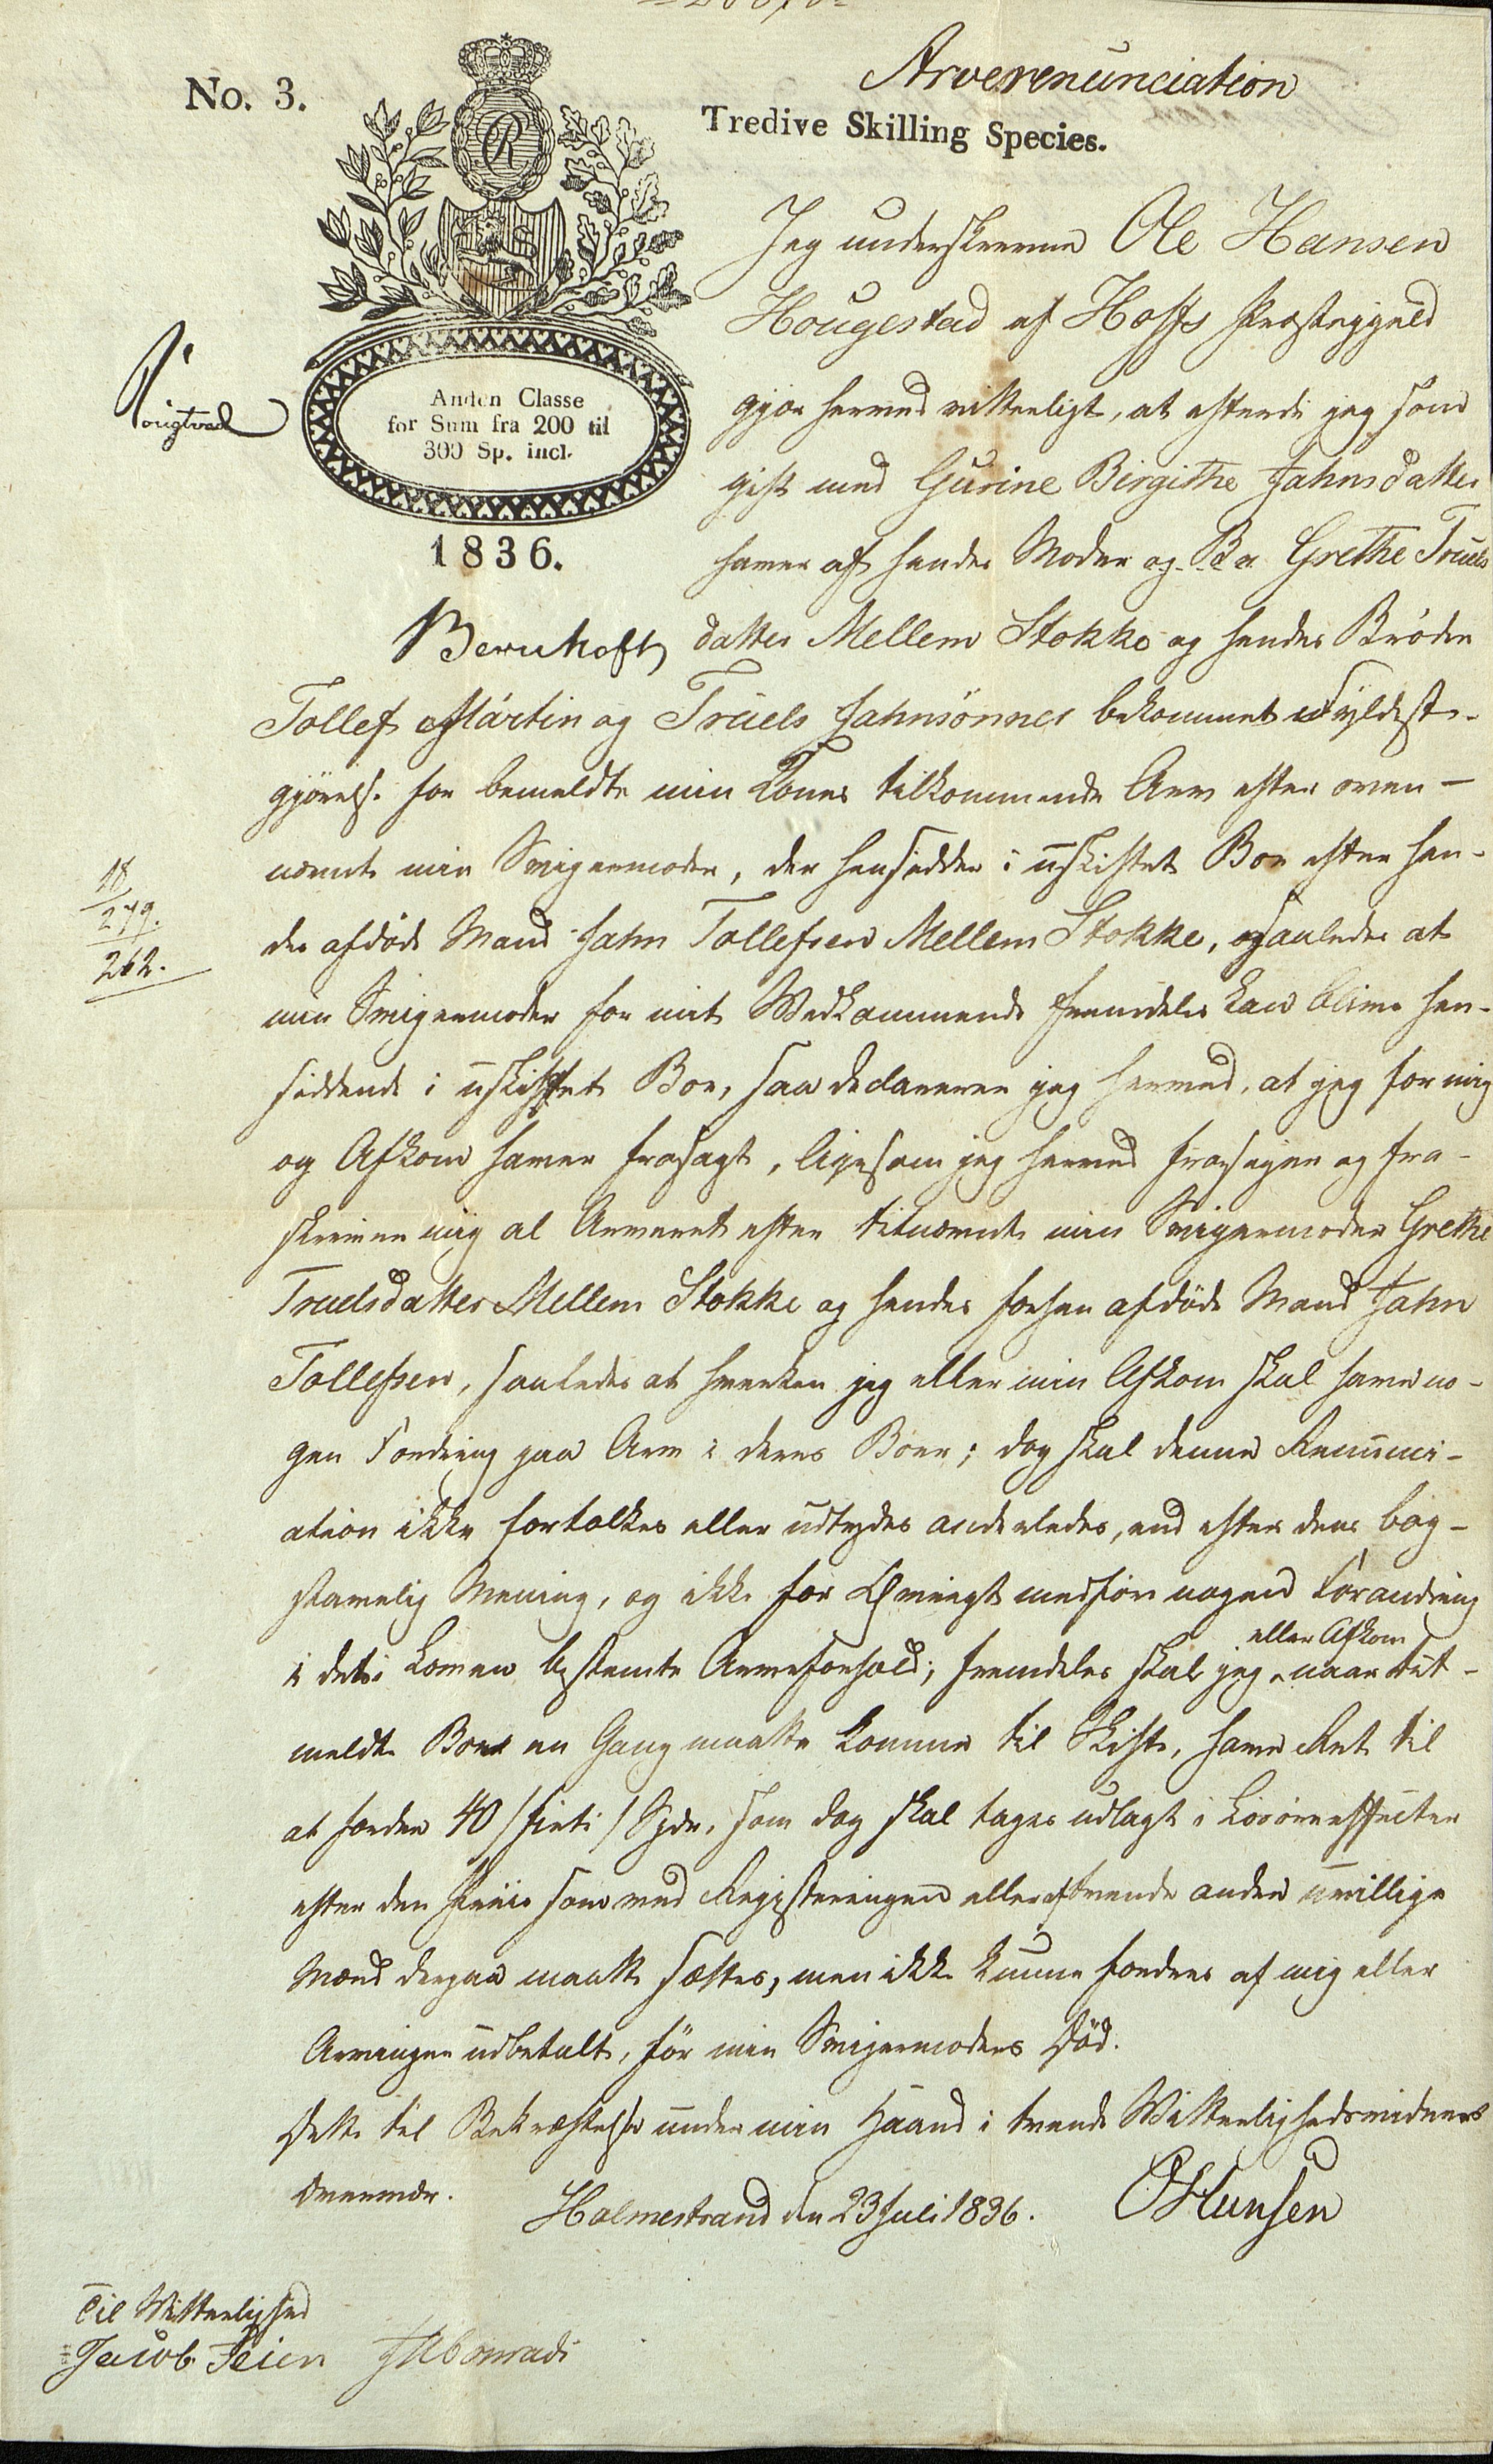 Arverenunciation
No. 3.
Tredive Skilling Species.
R
Jeg underskrevne Ole Hansen
Hougestad af Hoffs Præstegjeld
Anden Classe
for Sum fra 200 til
300 Sp. incl.
gjør herved vitterligt, at efterdi jeg som
gift med Gurine Birgithe Jahnsdatter
1836.
haver af hendes Moder og Grethe Truels
Bernhoft
datter Mellem Stokke og hendes Brødre
Tollef Martin og Truels Jahnsønner bekommet Fyldest-
gjørelse for bemeldte min Kones tilkommende Arv efter oven-
nævnte min Svigermoder, der hensidder i uskiftet Boe efter hen-
des afdøde Mand Jahn Tollefsen Mellem Stokke, saaledes at
18
279.
262.
min Svigermoder for mit Vedkommende fremdeles kan blive hen-
siddende i uskiftet Boe, saa declarerer jeg herved, at jeg for mig
og Afkom haver frasagt, ligesom jeg herved frasiger og fra-
skriver mig al Arveret efter titnævnte min Svigermoder Grethe
Truelsdatter Mellem Stokke og hendes forhen afdøde Mand Jahn
Tollefsen, saaledes at hverken jeg eller min Afkom skal have no-
gen Fordring paa Arv i deres Boer; dog skal denne Renunci-
ation ikke fortolkes eller udtydes anderledes, end efter dens bog-
stavelig Mening, og ikke for Øvrigt medføre nogen Forandring
i det i Loven bestemte Arveforhold; fremdeles skal jeg eller Afkom naar tit-
meldte Boe en Gang maatte komme til Skifte, have Ret til
at fordre 40 /firti/ Spdr, som dog skal tages udlagt i Løsøreeffecter
efter den Priis som ved Registeringen eller af tvende andre uvillige
Mænd derpaa maatte sættes, men ikke kunne fordres af mig eller
Arvinger udbetalt, før min Svigermoders Død.
Dette til Bekræftelse under min Haand i tvende Vitterlighedsvidners
Overvær.
Holmestrand den 23 Juli 1836.
OHansen
Til Vitterlighed
Jacob Feien